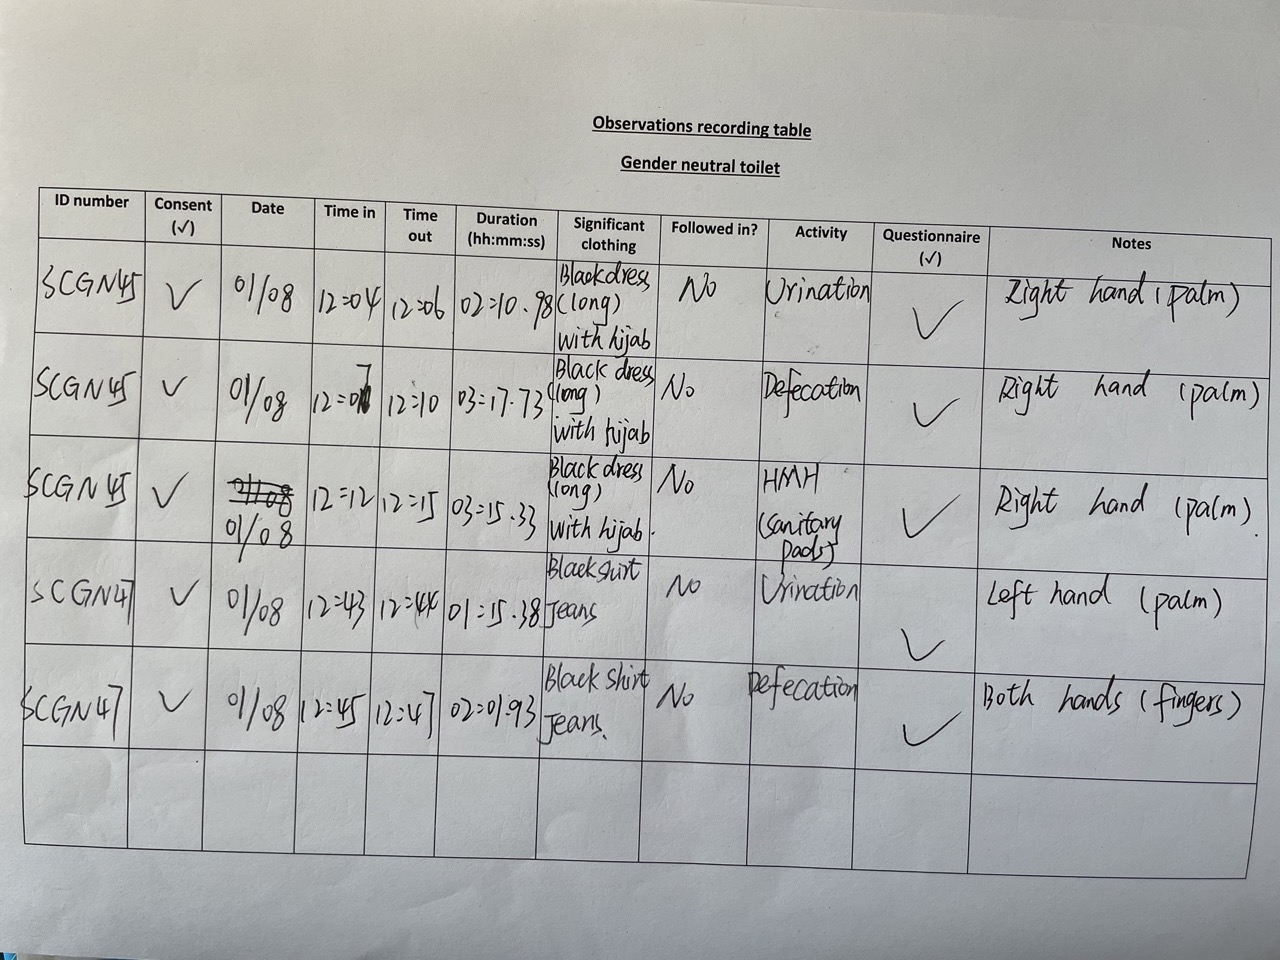 Observations recording table
Gender neutral toilet
ID number Consent (✓) Date Time in Time out Duration (hh:mm:ss) Significant clothing Followed in? Activity Questionnaire (✓) Notes
SCGN45 ✓ 01/08 12:04 12:06 02:10.98 Black dress (long) with hijab No Urination ✓ Right hand (palm)
SCGN45 ✓ 01/08 12:07 12:10 03:17.73 Black dress (long) with hijab No Defecation ✓ Right hand (palm)
SCGN45 ✓ 01/08 01/08 12:12 12:15 03:15.33 Black dress (long) with hijab. No HMH (sanitary pads) ✓ Right hand (palm).
SCGN47 ✓ 01/08 12:43 12:44 01:15.38 Black shirt Jeans No Urination ✓ Left hand (palm)
SCGN47 ✓ 01/08 12:45 12:47 02:01.93 Black shirt Jeans. No Defecation ✓ Both hands (fingers)